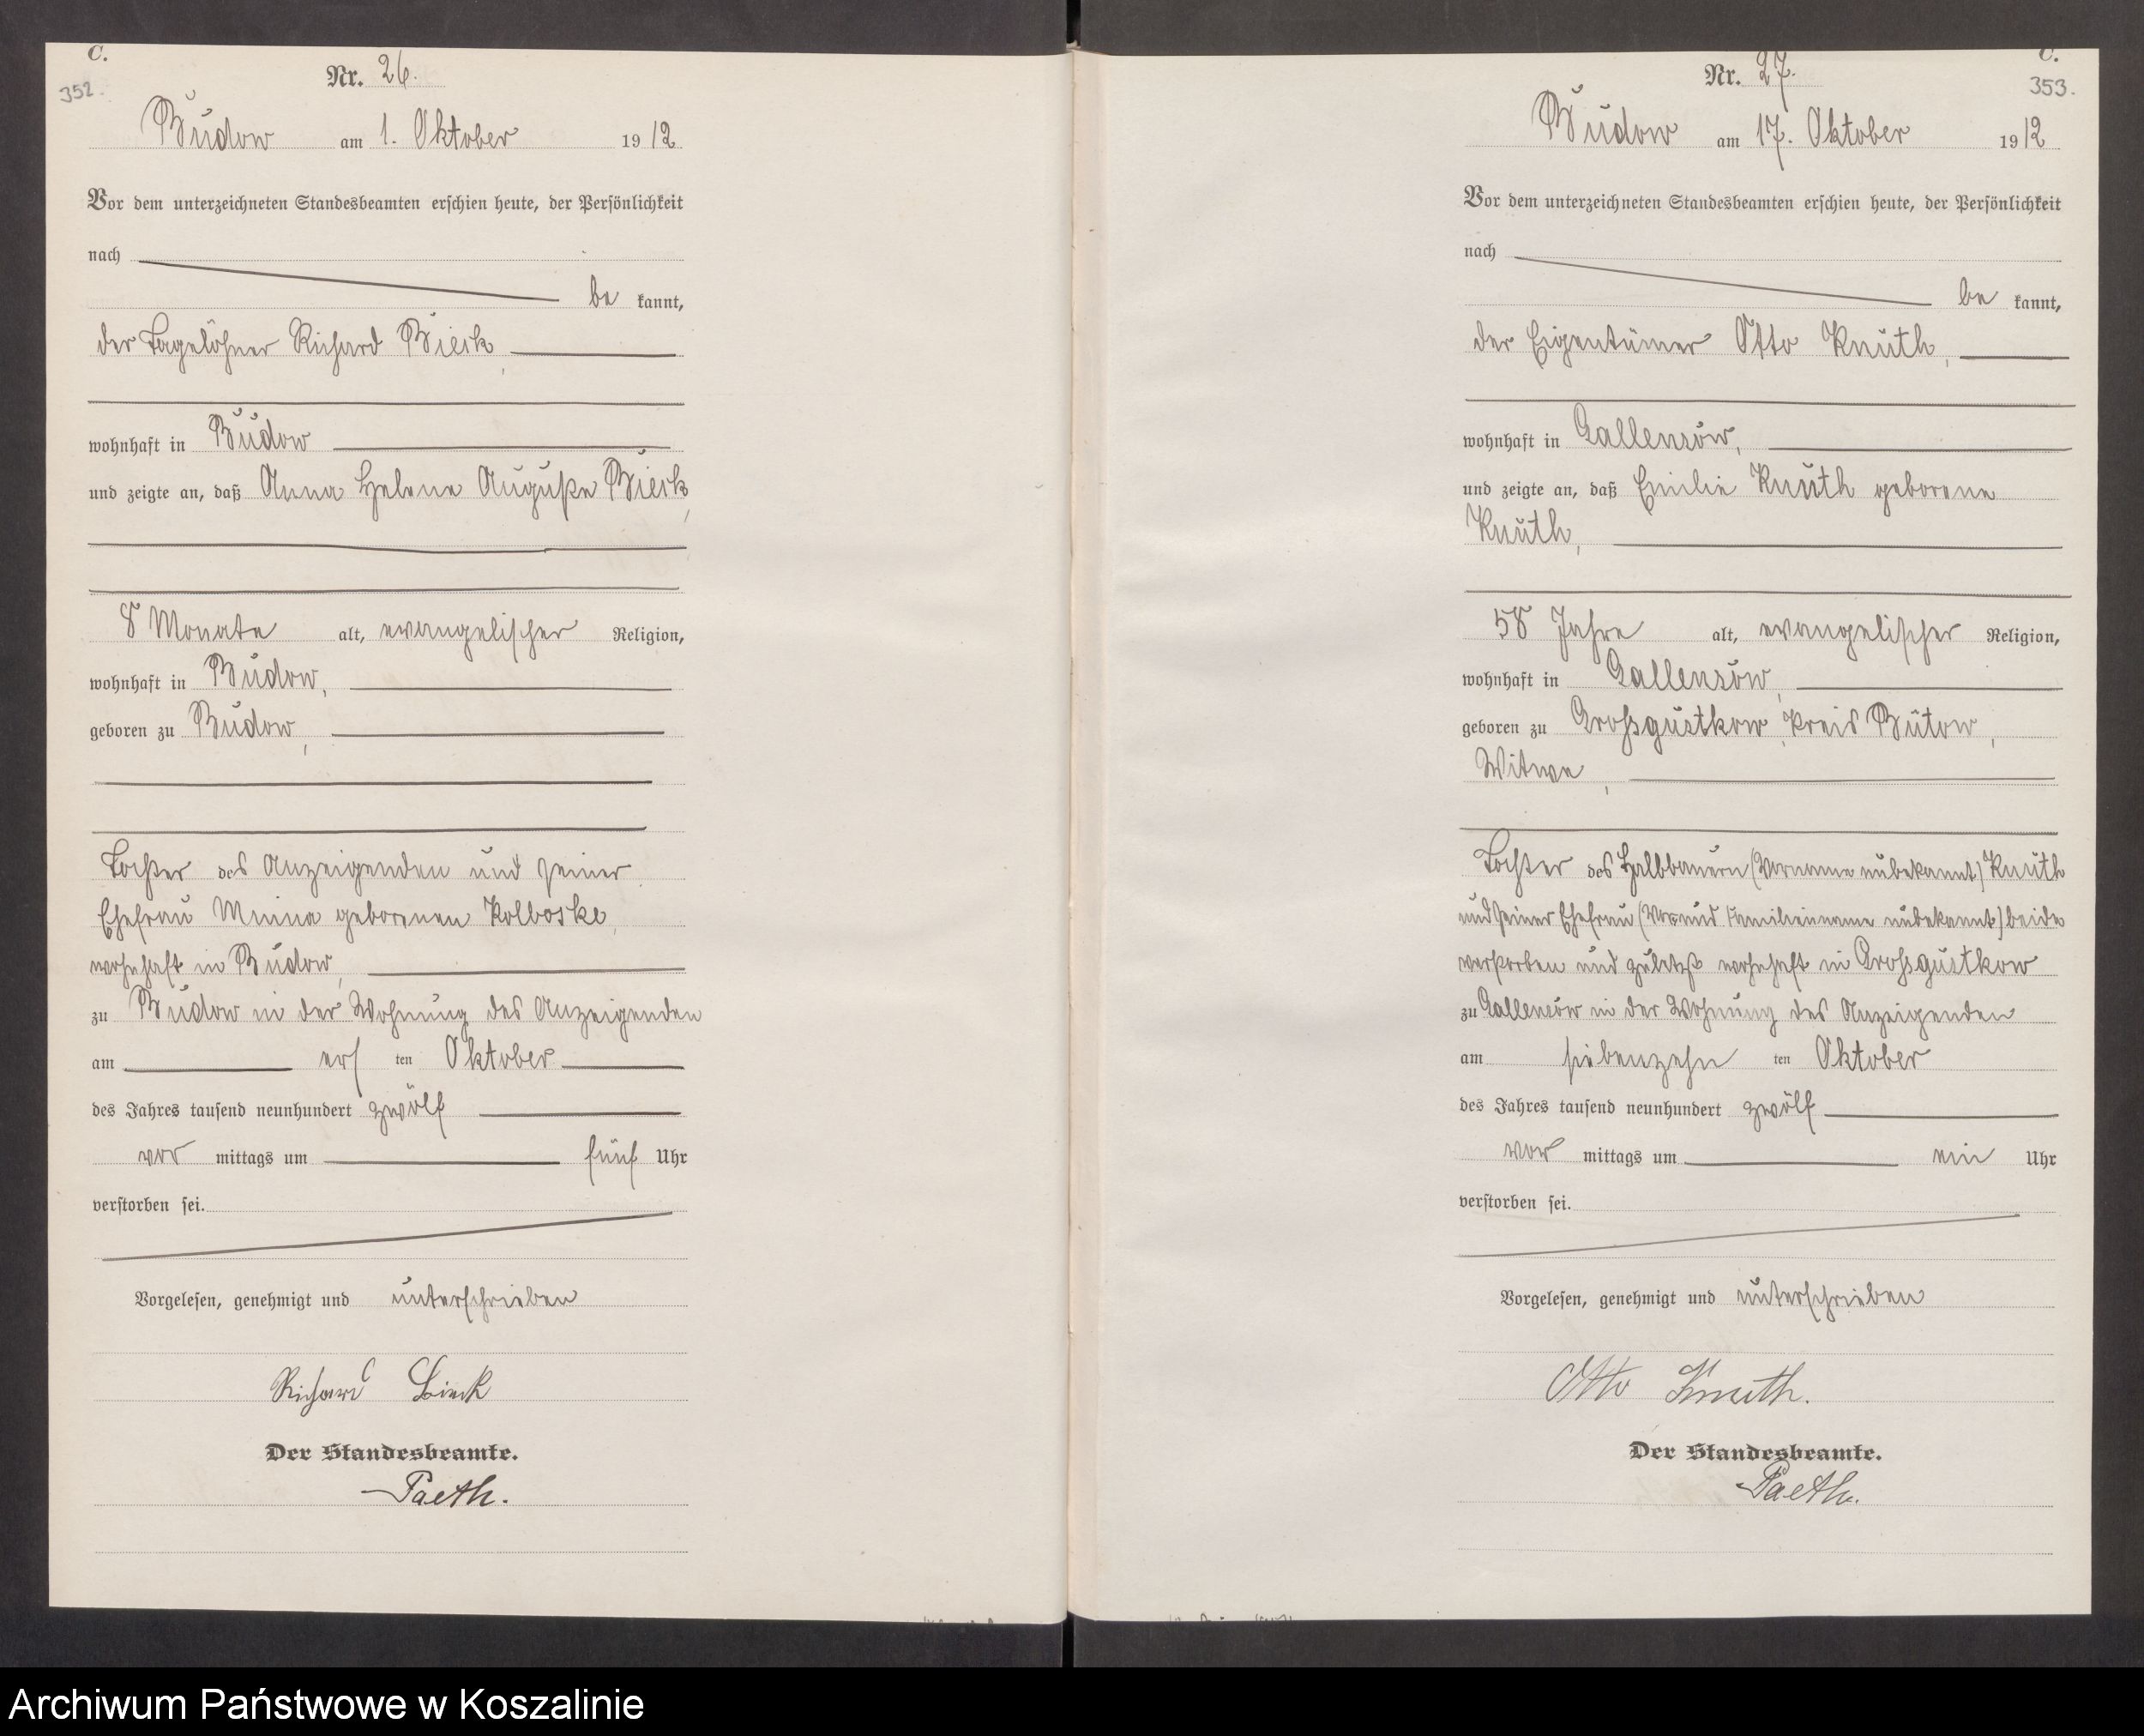 C.
352.
Nr. 26.
Budow am 1. Oktober 1912
Vor dem unterzeichneten Standesbeamten erschien heute, der Persönlichkeit
nach
be kannt,
der Tagelöhner Richard Bierk,
wohnhaft in Budow
und zeigte an, daß Anna Helene Auguste Bierk,
8 Monate alt, evangelischer Religion,
wohnhaft in Budow,
geboren zu Budow,
Tochter des Anzeigenden und seiner
Ehefrau Minna geborenen Kolboske,
wohnhaft in Budow,
zu Budow in der Wohnung des Anzeigenden
am ers ten Oktober
des Jahres tausend neunhundert zwölf
vor mittags um fünf Uhr
verstorben sei.
Vorgelesen, genehmigt und unterschrieben
Richard
Der Standesbeamte.
Paeth.
C.
353.
Nr. 27.
Budow am 17. Oktober 1912
Vor dem unterzeichneten Standesbeamten erschien heute, der Persönlichkeit
nach
be kannt,
der Eigentümer Otto Knuth,
wohnhaft in Gallensow,
und zeigte an, daß Emilie Knuth geborene
Knuth,
58 Jahre alt, evangelischer Religion,
wohnhaft in Gallensow,
geboren zu Großgustkow, Kreis Bütow,
Witwe,
Tochter des Halbbauern (Vorname unbekannt) Knuth
und seiner Ehefrau (Vor und Familienname unbekannt) beide
verstorben und zuletzt wohnhaft in Großgustkow
zu Gallensow in der Wohnung des Anzeigenden
am siebenzehn ten Oktober
des Jahres tausend neunhundert zwölf
vor mittags um ein Uhr
verstorben sei.
Vorgelesen, genehmigt und unterschrieben
Otto Knuth.
Der Standesbeamte.
Paeth.
Archiwum Państwowe w Koszalinie